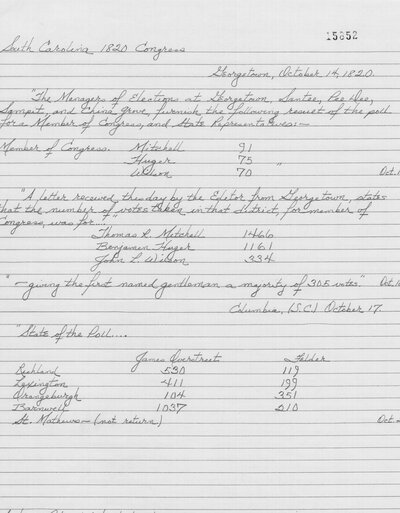 15852
South Carolina 1820 Congress
Georgetown, October 14, 1820.
"The Managers of Elections at Georgetown, Santee, Pee Dee,
Sampit and Grove, furnish the following result of the poll
for a Member of Congress, and State Representatives:—
Member of Congress. Mitchell 91
Huger 75 "
Wilson 70 Oct.
"A letter received this day by the Editor from Georgetown, states
that the number of votes taken in that District, for member of
Congress, was for...."
Thomas R. Mitchell 1466
Benjamin Huger 1161
John L. Wilson 334
"—giving the first named gentleman a majority of 305 votes." Oct.
Columbia, (S.C.) October 17.
"State of the Poll....
James Overstreet Felder
Richland 530 119
Lexington 411 199
Orangeburgh 104 351
Barnwell 1037 210
St. Mathews— (not return) Oct.